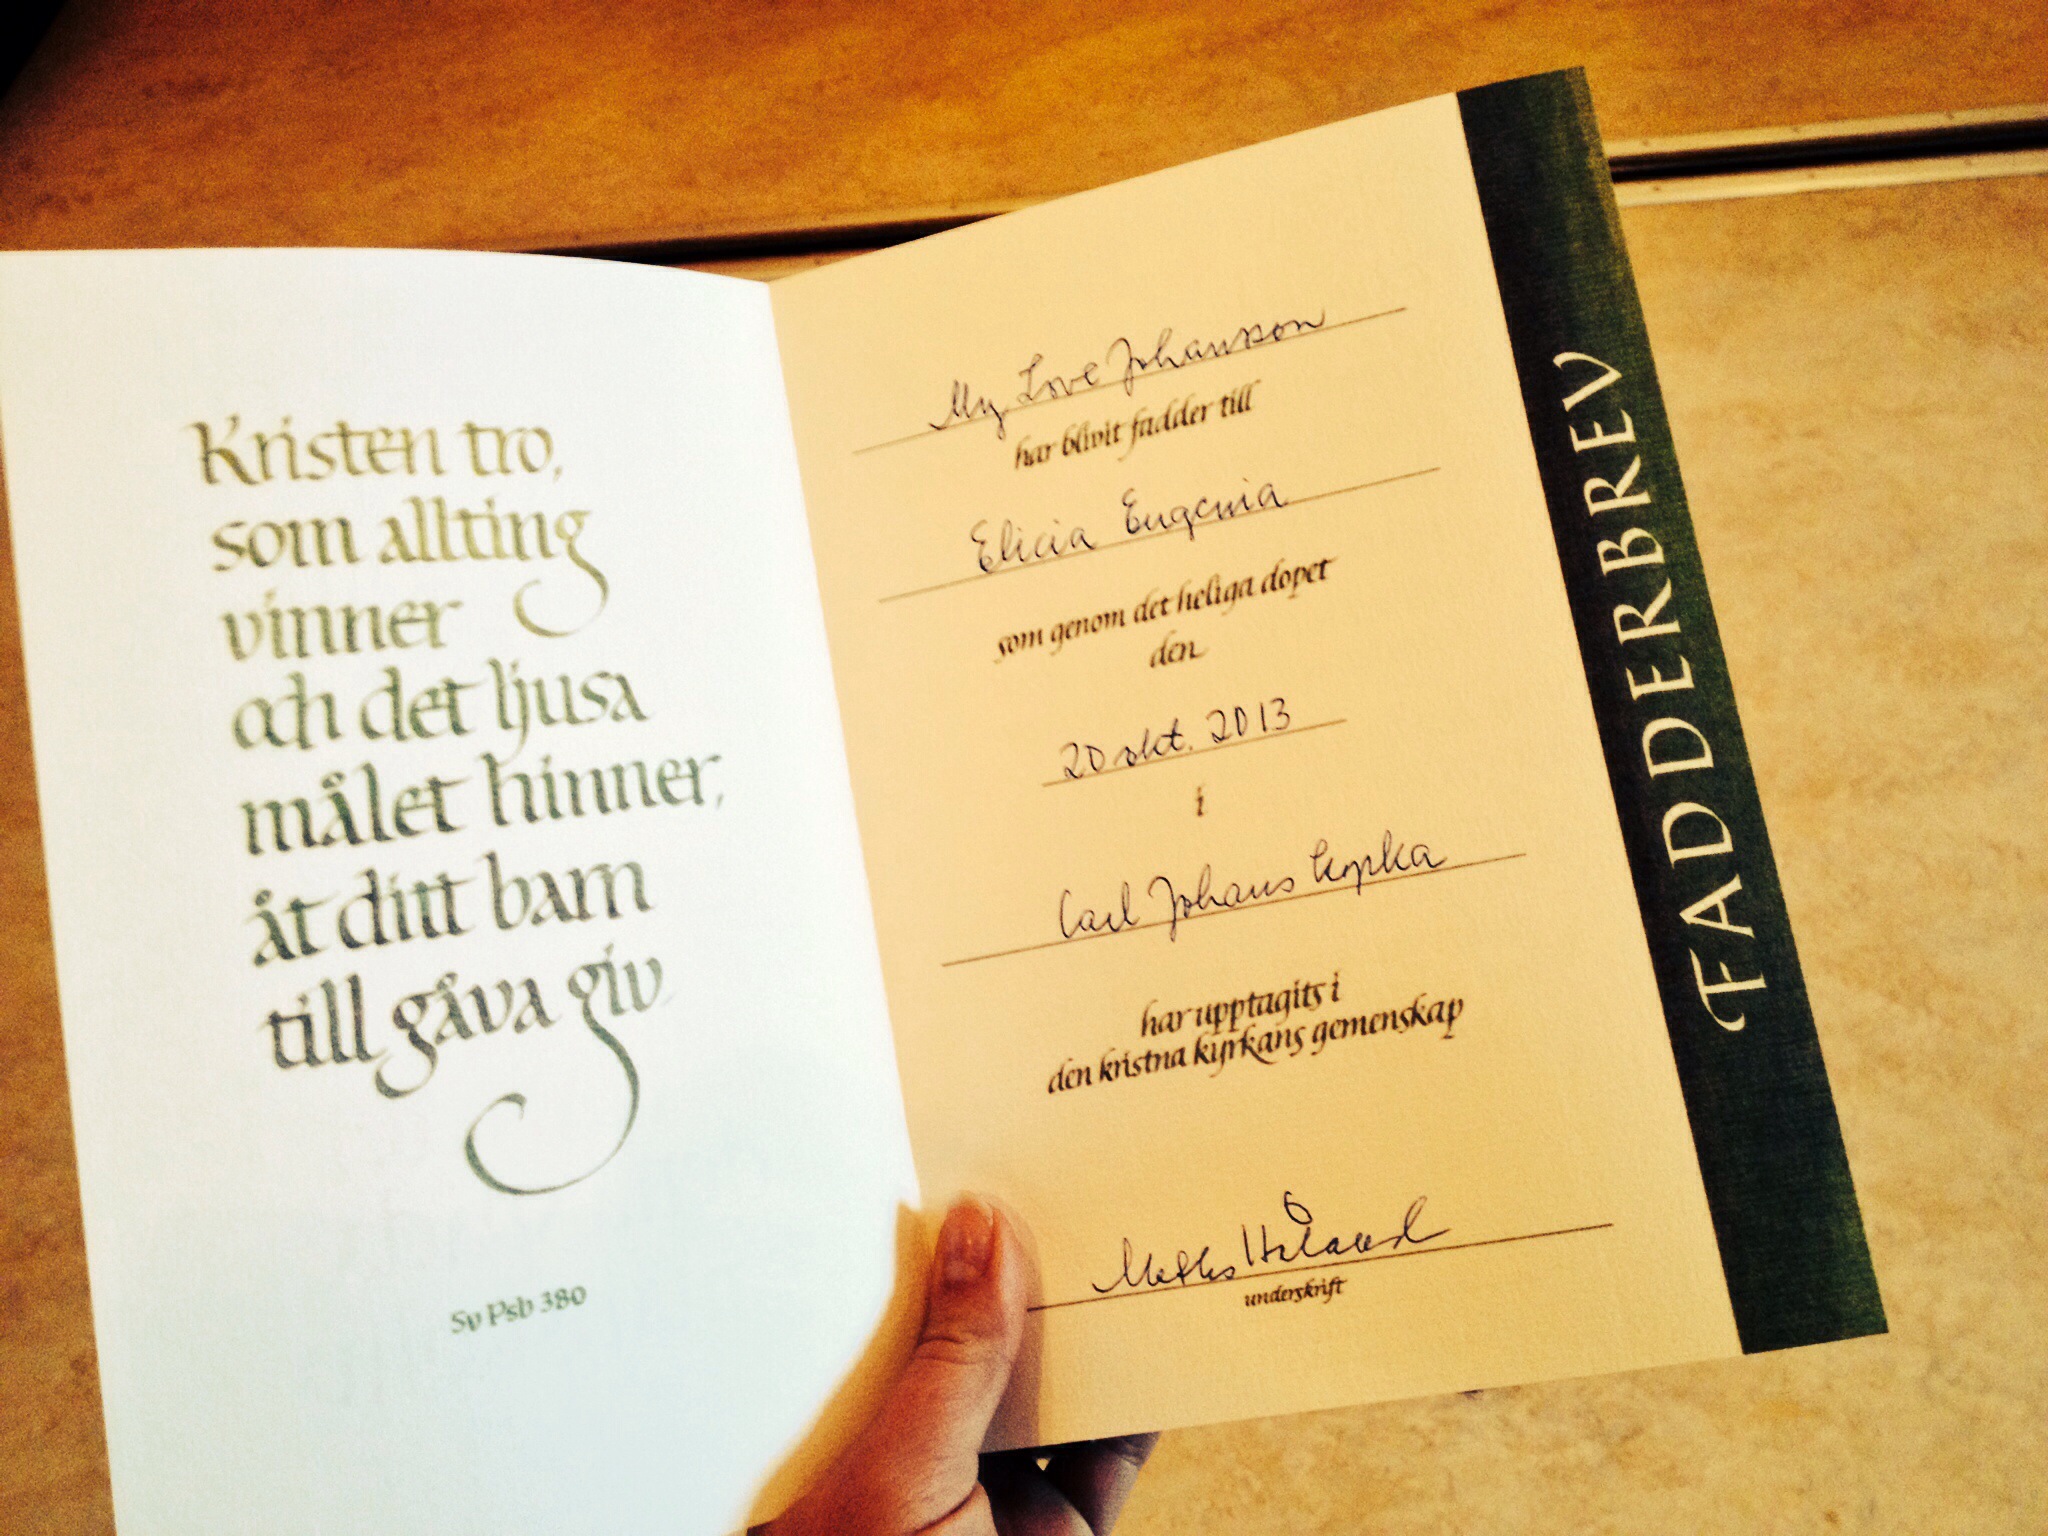 Kristen tro,
som allting
vinner
och det ljusa
målet hinner,
åt ditt barn
till gåva giv.
Sv Psb 380
My Love Johansson
har blivit fadder till
Elicia Eugenia
som genom det heliga dopet
den
20 okt. 2013
i
Carl Johans kyrka
har upptagits i
den kristna kyrkans gemenskap
underskrift
FADDERBREV